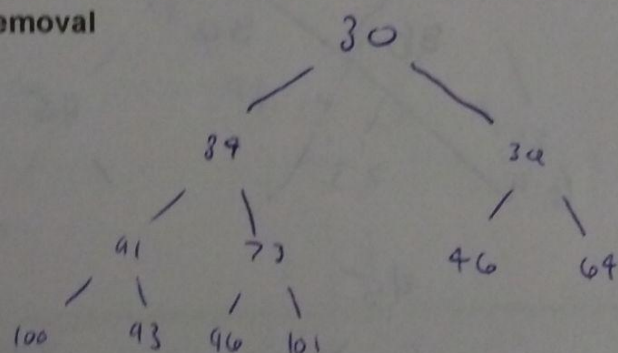 emoval
30
39
91 73 46 64
100 93 96 101